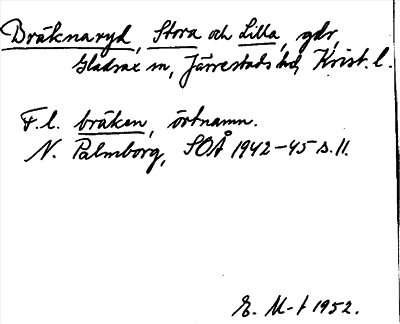 Bräknaryd, Stora och Lilla, gdr,
Gladsax sn, Järrestads hd, Krist. l.
F.l. bräken, örtnamn.
N. Palmborg, SOÅ 1942-45 s. 11.
E. M-t 1952.